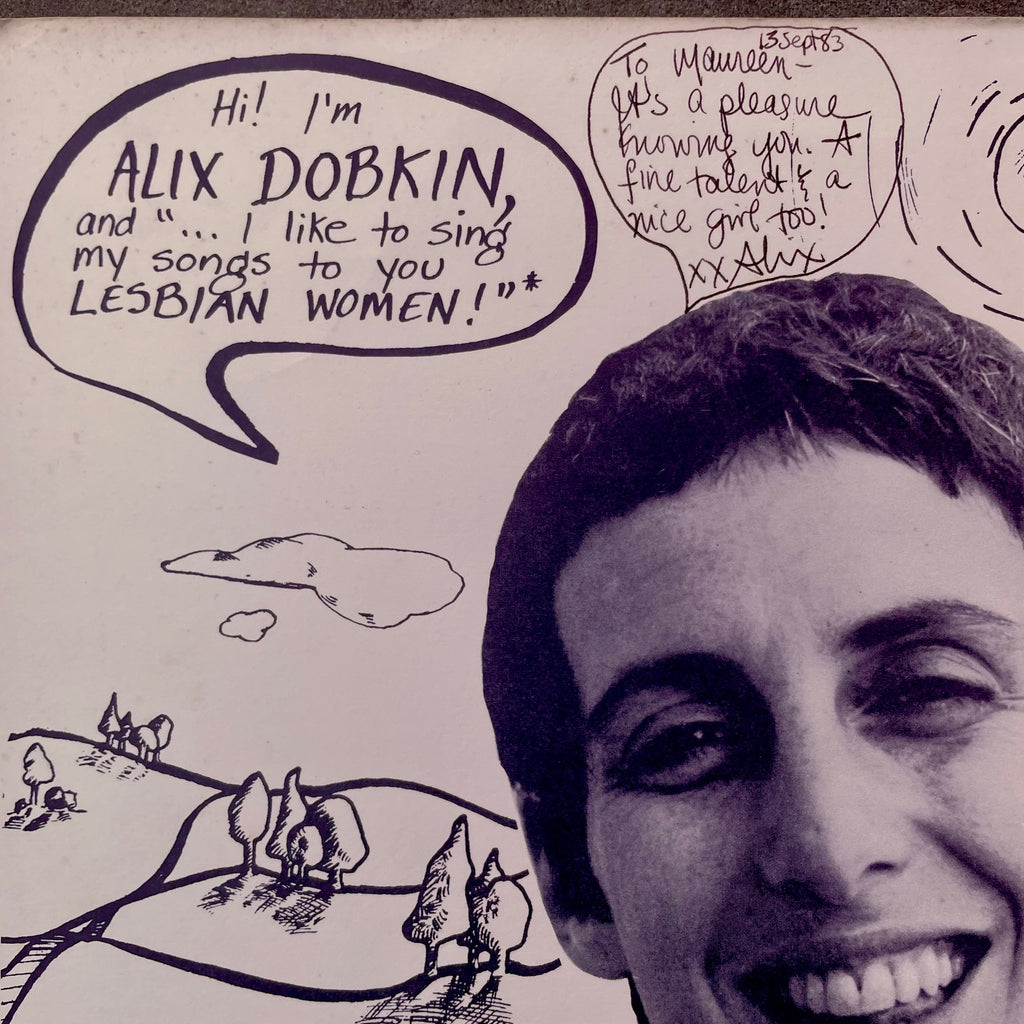 Hi! I'm
ALIX DOBKIN,
and "... I like to sing
my songs to you
LESBIAN WOMEN!"*
13 Sept 83
To Maureen –
It's a pleasure
knowing you. A
fine talent & a
nice girl too!
xx Alix